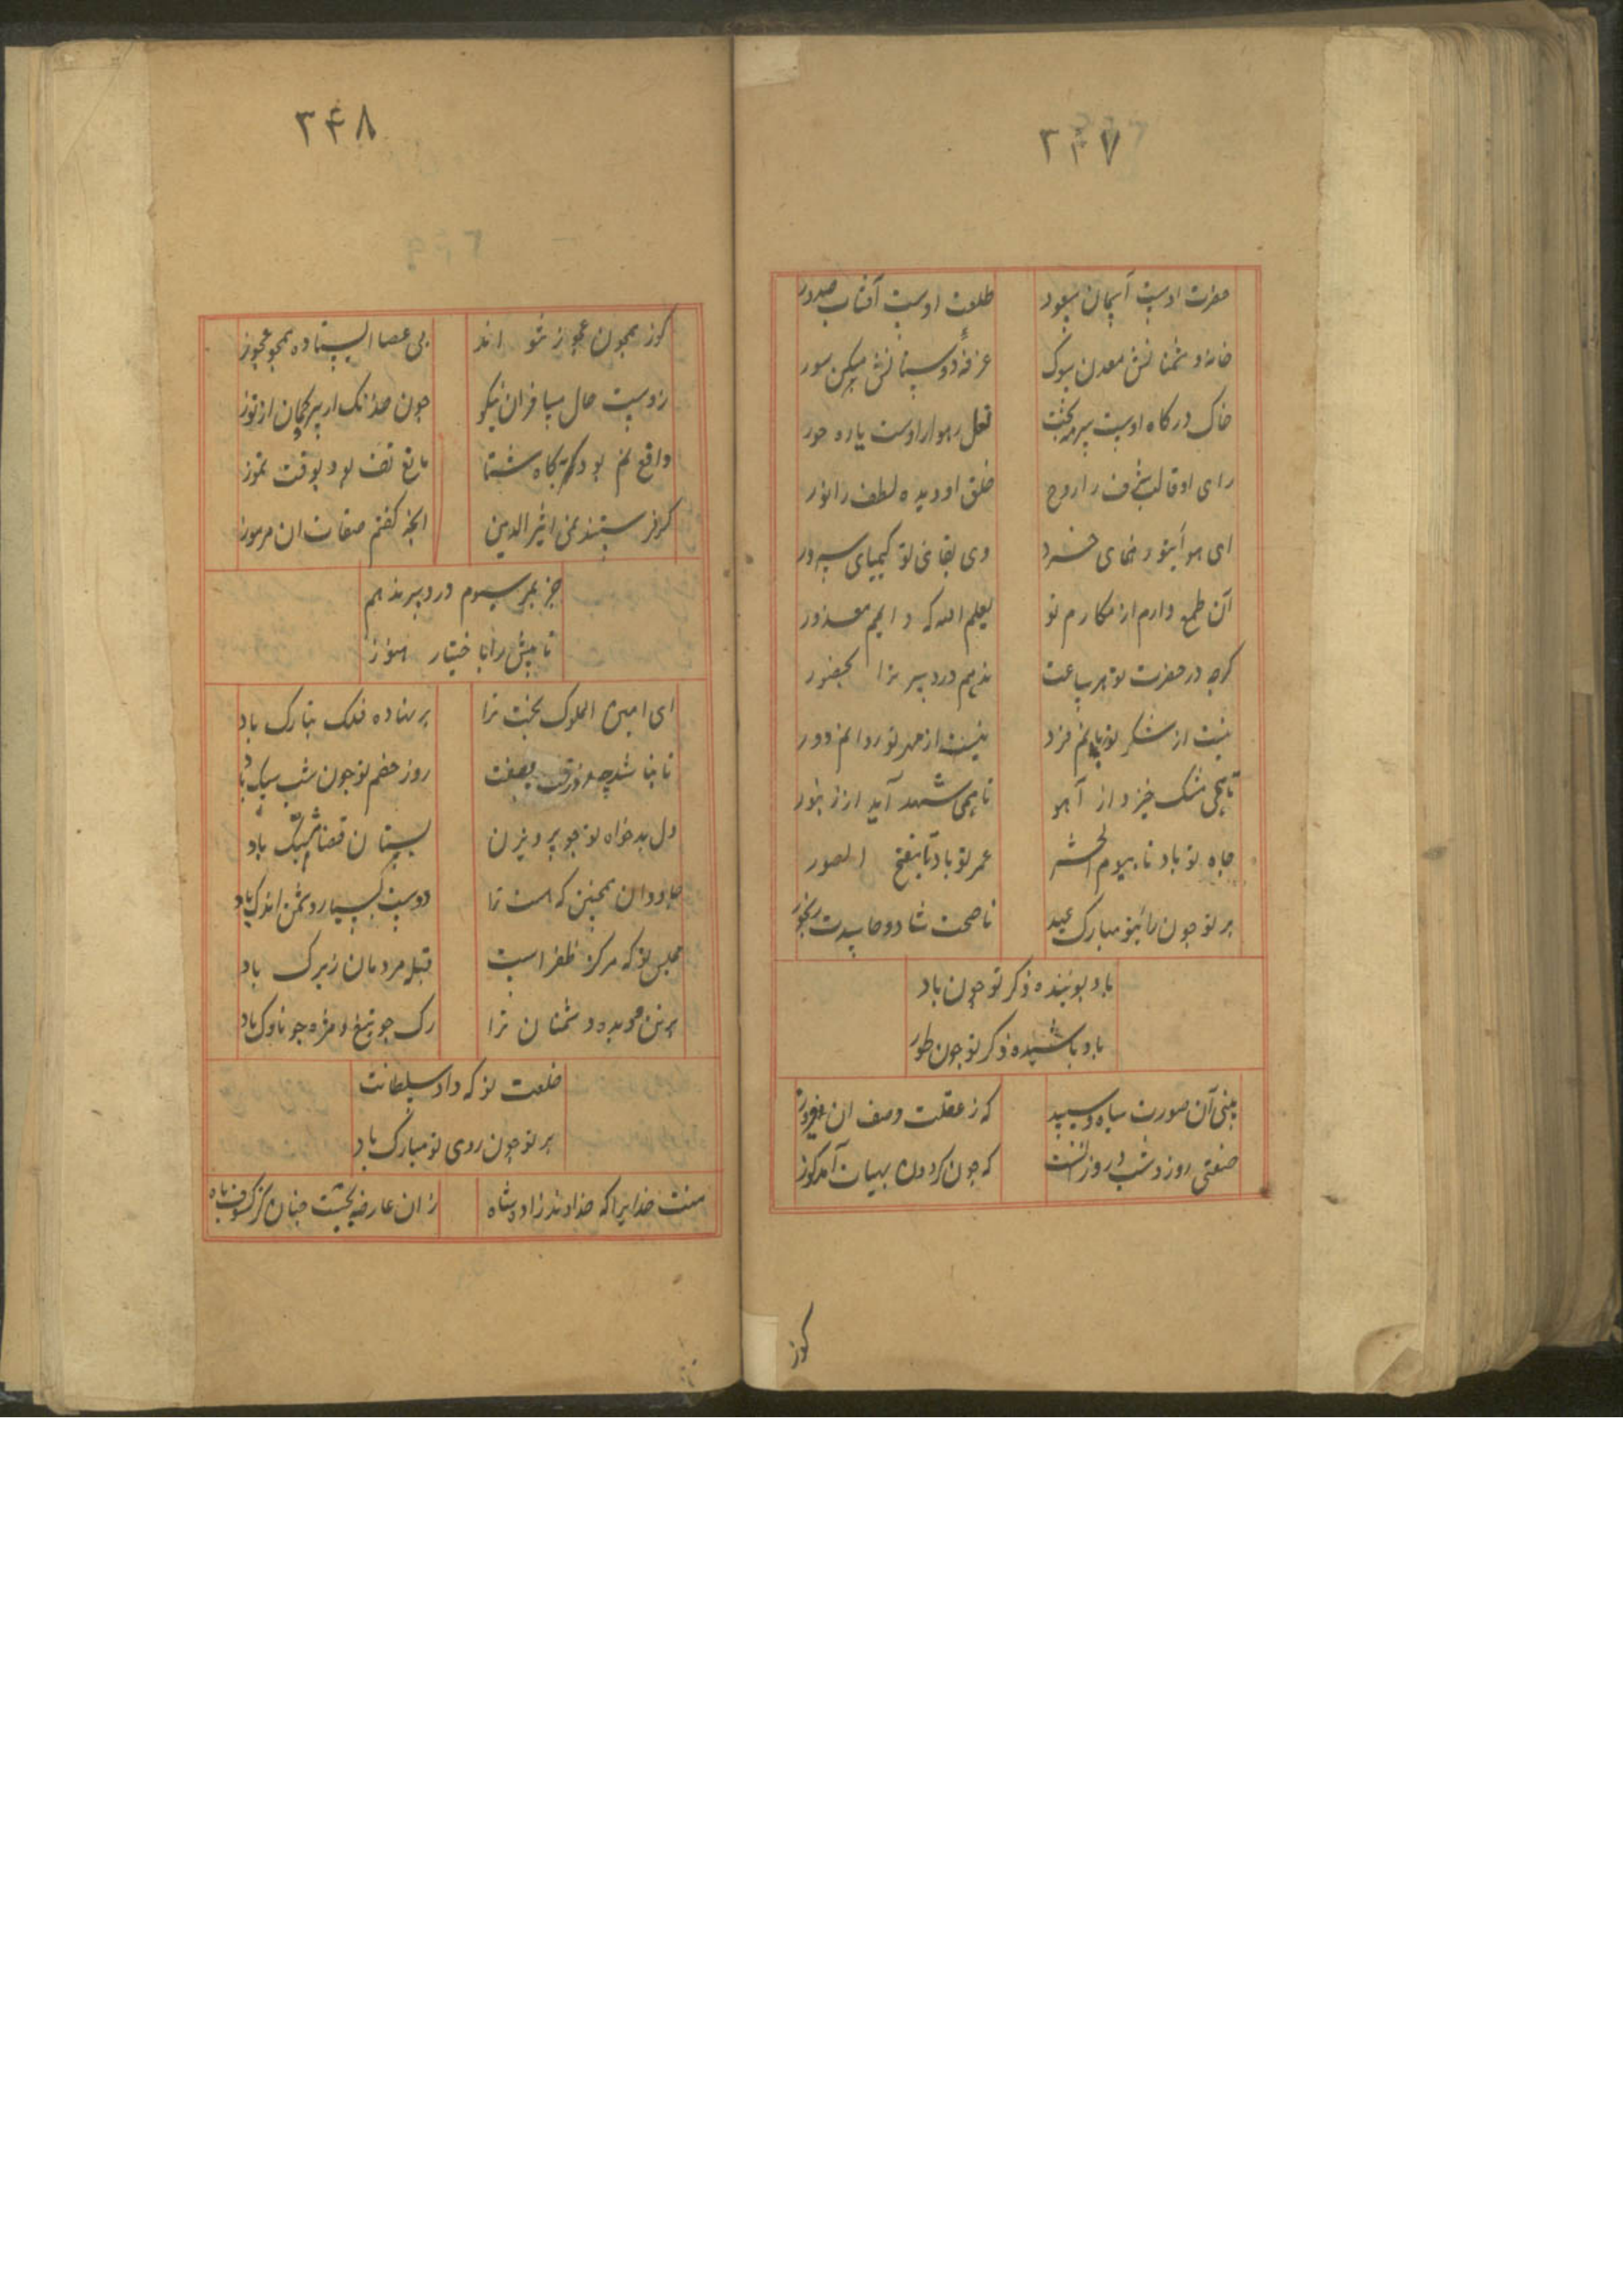 ۳۴۷
حضرت اوست آسمان سعود
طلعت اوست آفتاب صدور
خانهٔ دشمنانش معدن سوک
غرفهٔ دوستانش مسکن سور
خاک درکاه اوست سرمه بخت
نعل رهوار اوست یاره حور
رای او قالب شرف را روح
خلق او دیده لطف را نور
ای هوا تو رهنمای خرد
وی لقای تو کیمیای سرور
آن طمع دارم از مکارم تو
یعلم الله که داریم معذور
کرچه در حضرت تو هر ساعت
ندهم دردسر ترا بحضور
نیست از شکر تو زبانم فرد
نیست از مهر تو روانم دور
تا همی مشک خیزد از آهو
تا همی شهد آید از زنبور
جاه تو باد تا بیوم الحشر
عمر تو باد تا بنفخ الصور
بر تو چون رای تو مبارک عید
ناصحت شاد و حاسدت رنجور
باد بوینده ذکر تو چون باد
باد پاشیده ذکر تو چون طور
بینی آن صورت سیاه و سپید
که ز عقلت وصف ان
صنعتی روز و شب دروز
که چون کردون بهیات آمد کوز
کوز
۳۴۸
کوز همچون عجوز شو اند
بی عصا ایستاده همچو عجوز
زوست حال مسافران نیکو
چون خدنک از بر کمان از توز
واقع نم بود بکاه شتا
مانع تف بود بوقت تموز
کر فرستند نمی اثیر الدین
انچه کفتم صفات ان مرموز
جز بمرسوم دردسر ندهم
تا مش را با ختیار هنوز
ای امین الملوک بخت ترا
بر نهاده فلک بتارک باد
تا بنا شد چو
روز خصم تو چون شب سیک باد
دل بدخواه تو چو پرویزن
بسنان قضا مشبک باد
جاودان همچنین که هست ترا
دوست بسیار و دشمن اندک باد
مجلس تو که مرکز ظفر است
قبله مردمان زیرک باد
بر تن و دیده دشمنان ترا
رک چو تیغ و مژه چو ناوک باد
خلعت تو که داد سلطانت
بر تو چون روی تو مبارک باد
منت خدایرا که خداوند زاد و شاه
زان عارضه بجست چنان کز کسوف ماه